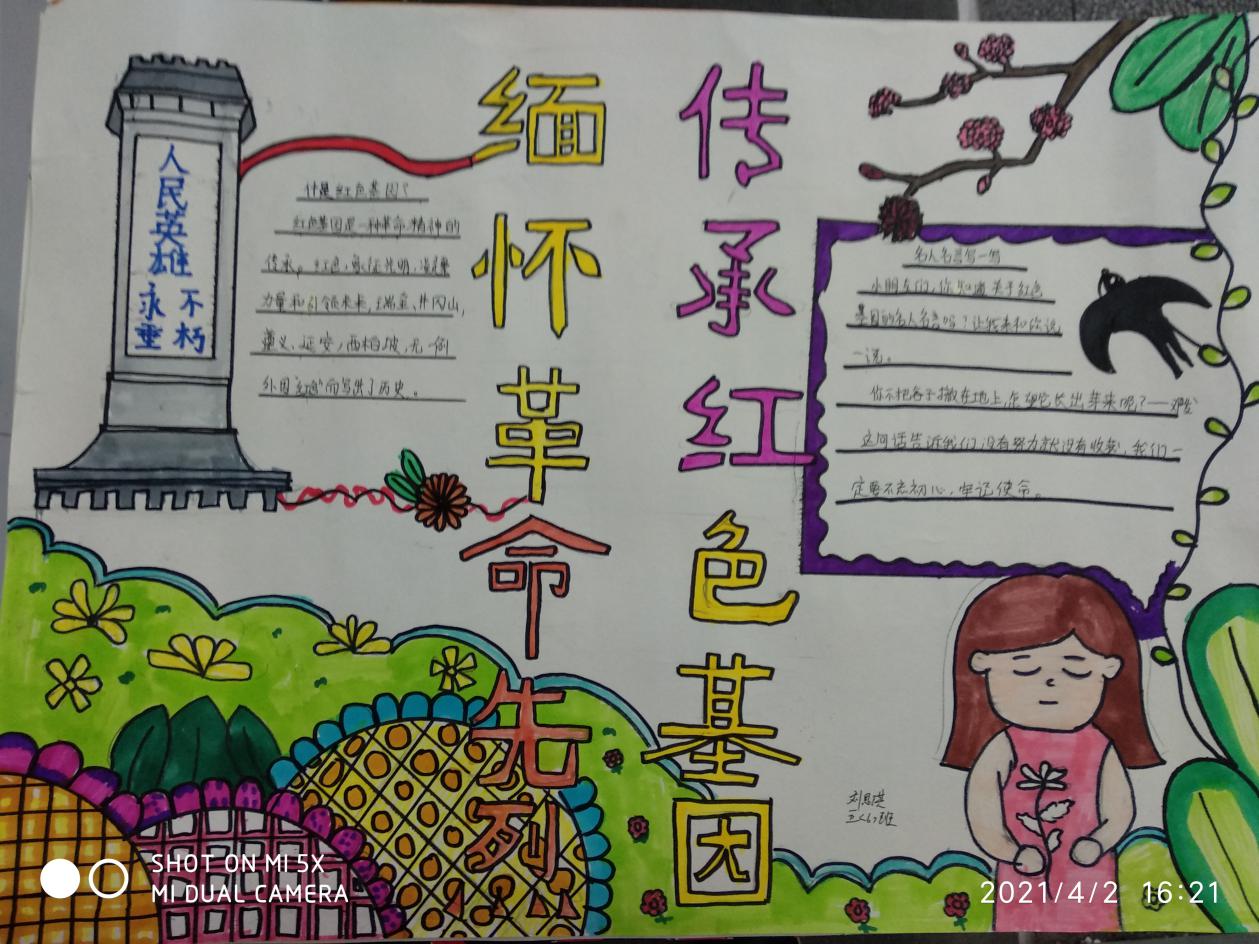 人民英雄
永垂
不朽
缅怀革命先烈
传承红色基因
什是红色基因？
红色基因是一种革命精神的
传承。红色，象征光明，凝聚
力量和引领未来，瑞金、井冈山，
遵义、延安，西柏坡，无一例
外因"红色"而写进了历史。
名人名言写一写
小朋友们，你知道关于红色
基因的名人名言吗？让我来和你说
一说。
你不把种子撒在地上，怎望它长出芽来呢？——邓
这句话告诉我们，没有努力就没有收获，我们一
定要不忘初心，牢记使命。
班
SHOT ON MI 5X
MI DUAL CAMERA
2021/4/2 16:21